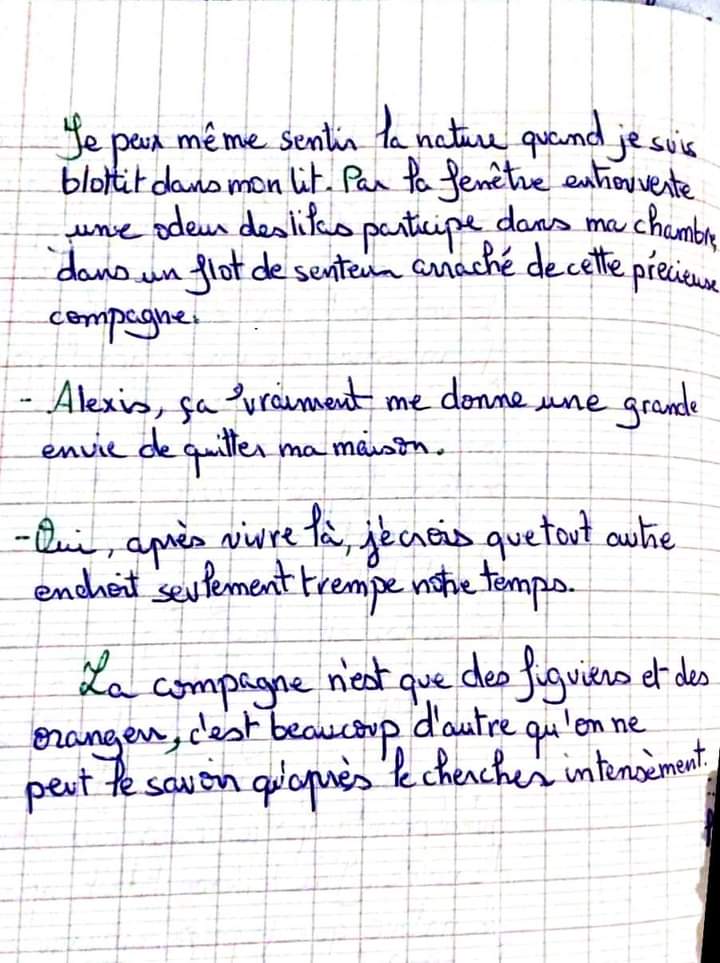 Je peux même sentir la nature quand je suis
blottit dans mon lit. Par la fenêtre entrouverte
une odeur des lilas participe dans ma chambre,
dans un flot de senteur arraché de cette précieuse
compagne.
- Alexis, ça vraiment me donne une grande
envie de quitter ma maison.
- Oui, après vivre là, je crois que tout autre
endroit seulement trempe notre temps.
La compagne n'est que des figuiers et des
oranger, c'est beaucoup d'autre qu'on ne
peut le savoir qu'après le chercher intensèment.